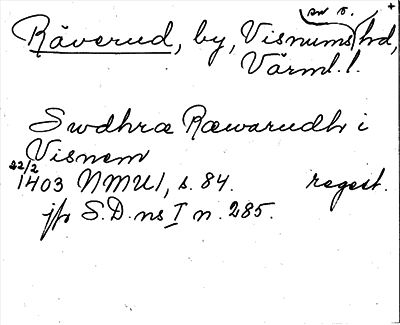 sn o. +
Räverud, by, Visnums hd,
Värml. l.
Swdhræ Ræwarudh i
Visnem
22/2
1403 NMU1, s. 84. regest.
jfr S.D. ns I n. 285.